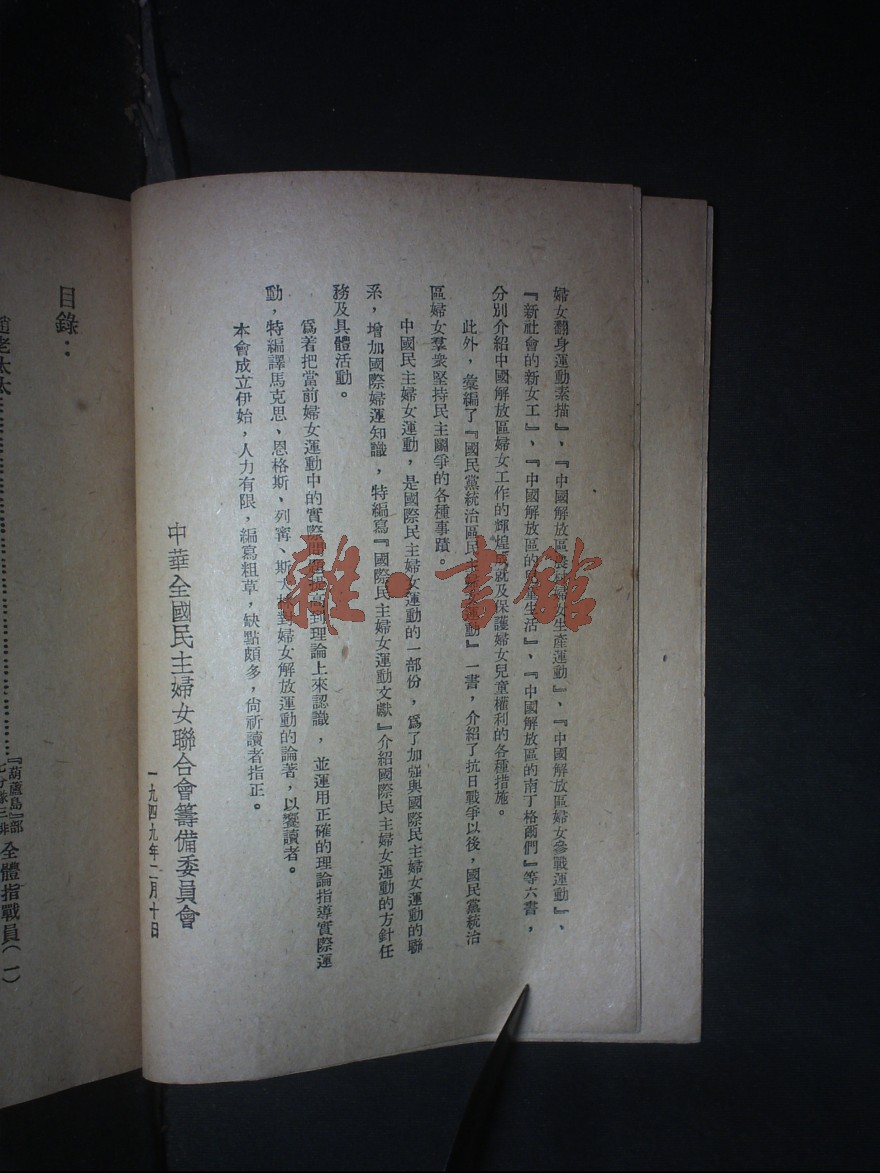 婦女翻身運動素描』、『中國解放區農村婦女生產運動』、『中國解放區婦女參戰運動』、
『新社會的新女工』、『中國解放區的 生活』、『中國解放區的南丁格爾們』等六書，
分別介紹中國解放區婦女工作的輝煌成就及保護婦女兒童權利的各種措施。
此外，彙編了『國民黨統治區民主 運動』一書，介紹了抗日戰爭以後，國民黨統治
區婦女羣衆堅持民主鬭爭的各種事蹟。
中國民主婦女運動，是國際民主婦女運動的一部份，爲了加强與國際民主婦女運動的聯
系，增加國際婦運知識，特編寫『國際民主婦女運動文獻』介紹國際民主婦女運動的方針任
務及具體活動。
爲着把當前婦女運動中的實際問題提高到理論上來認識，並運用正確的理論指導實際運
動，特編譯馬克思、恩格斯、列寧、斯大林對婦女解放運動的論著，以饗讀者。
本會成立伊始，人力有限，編寫粗草，缺點頗多，尙祈讀者指正。
中華全國民主婦女聯合會籌備委員會
一九四九年二月十日
目錄：
趙老太太……『葫蘆島』部 全體指戰員(一)
雜·書館